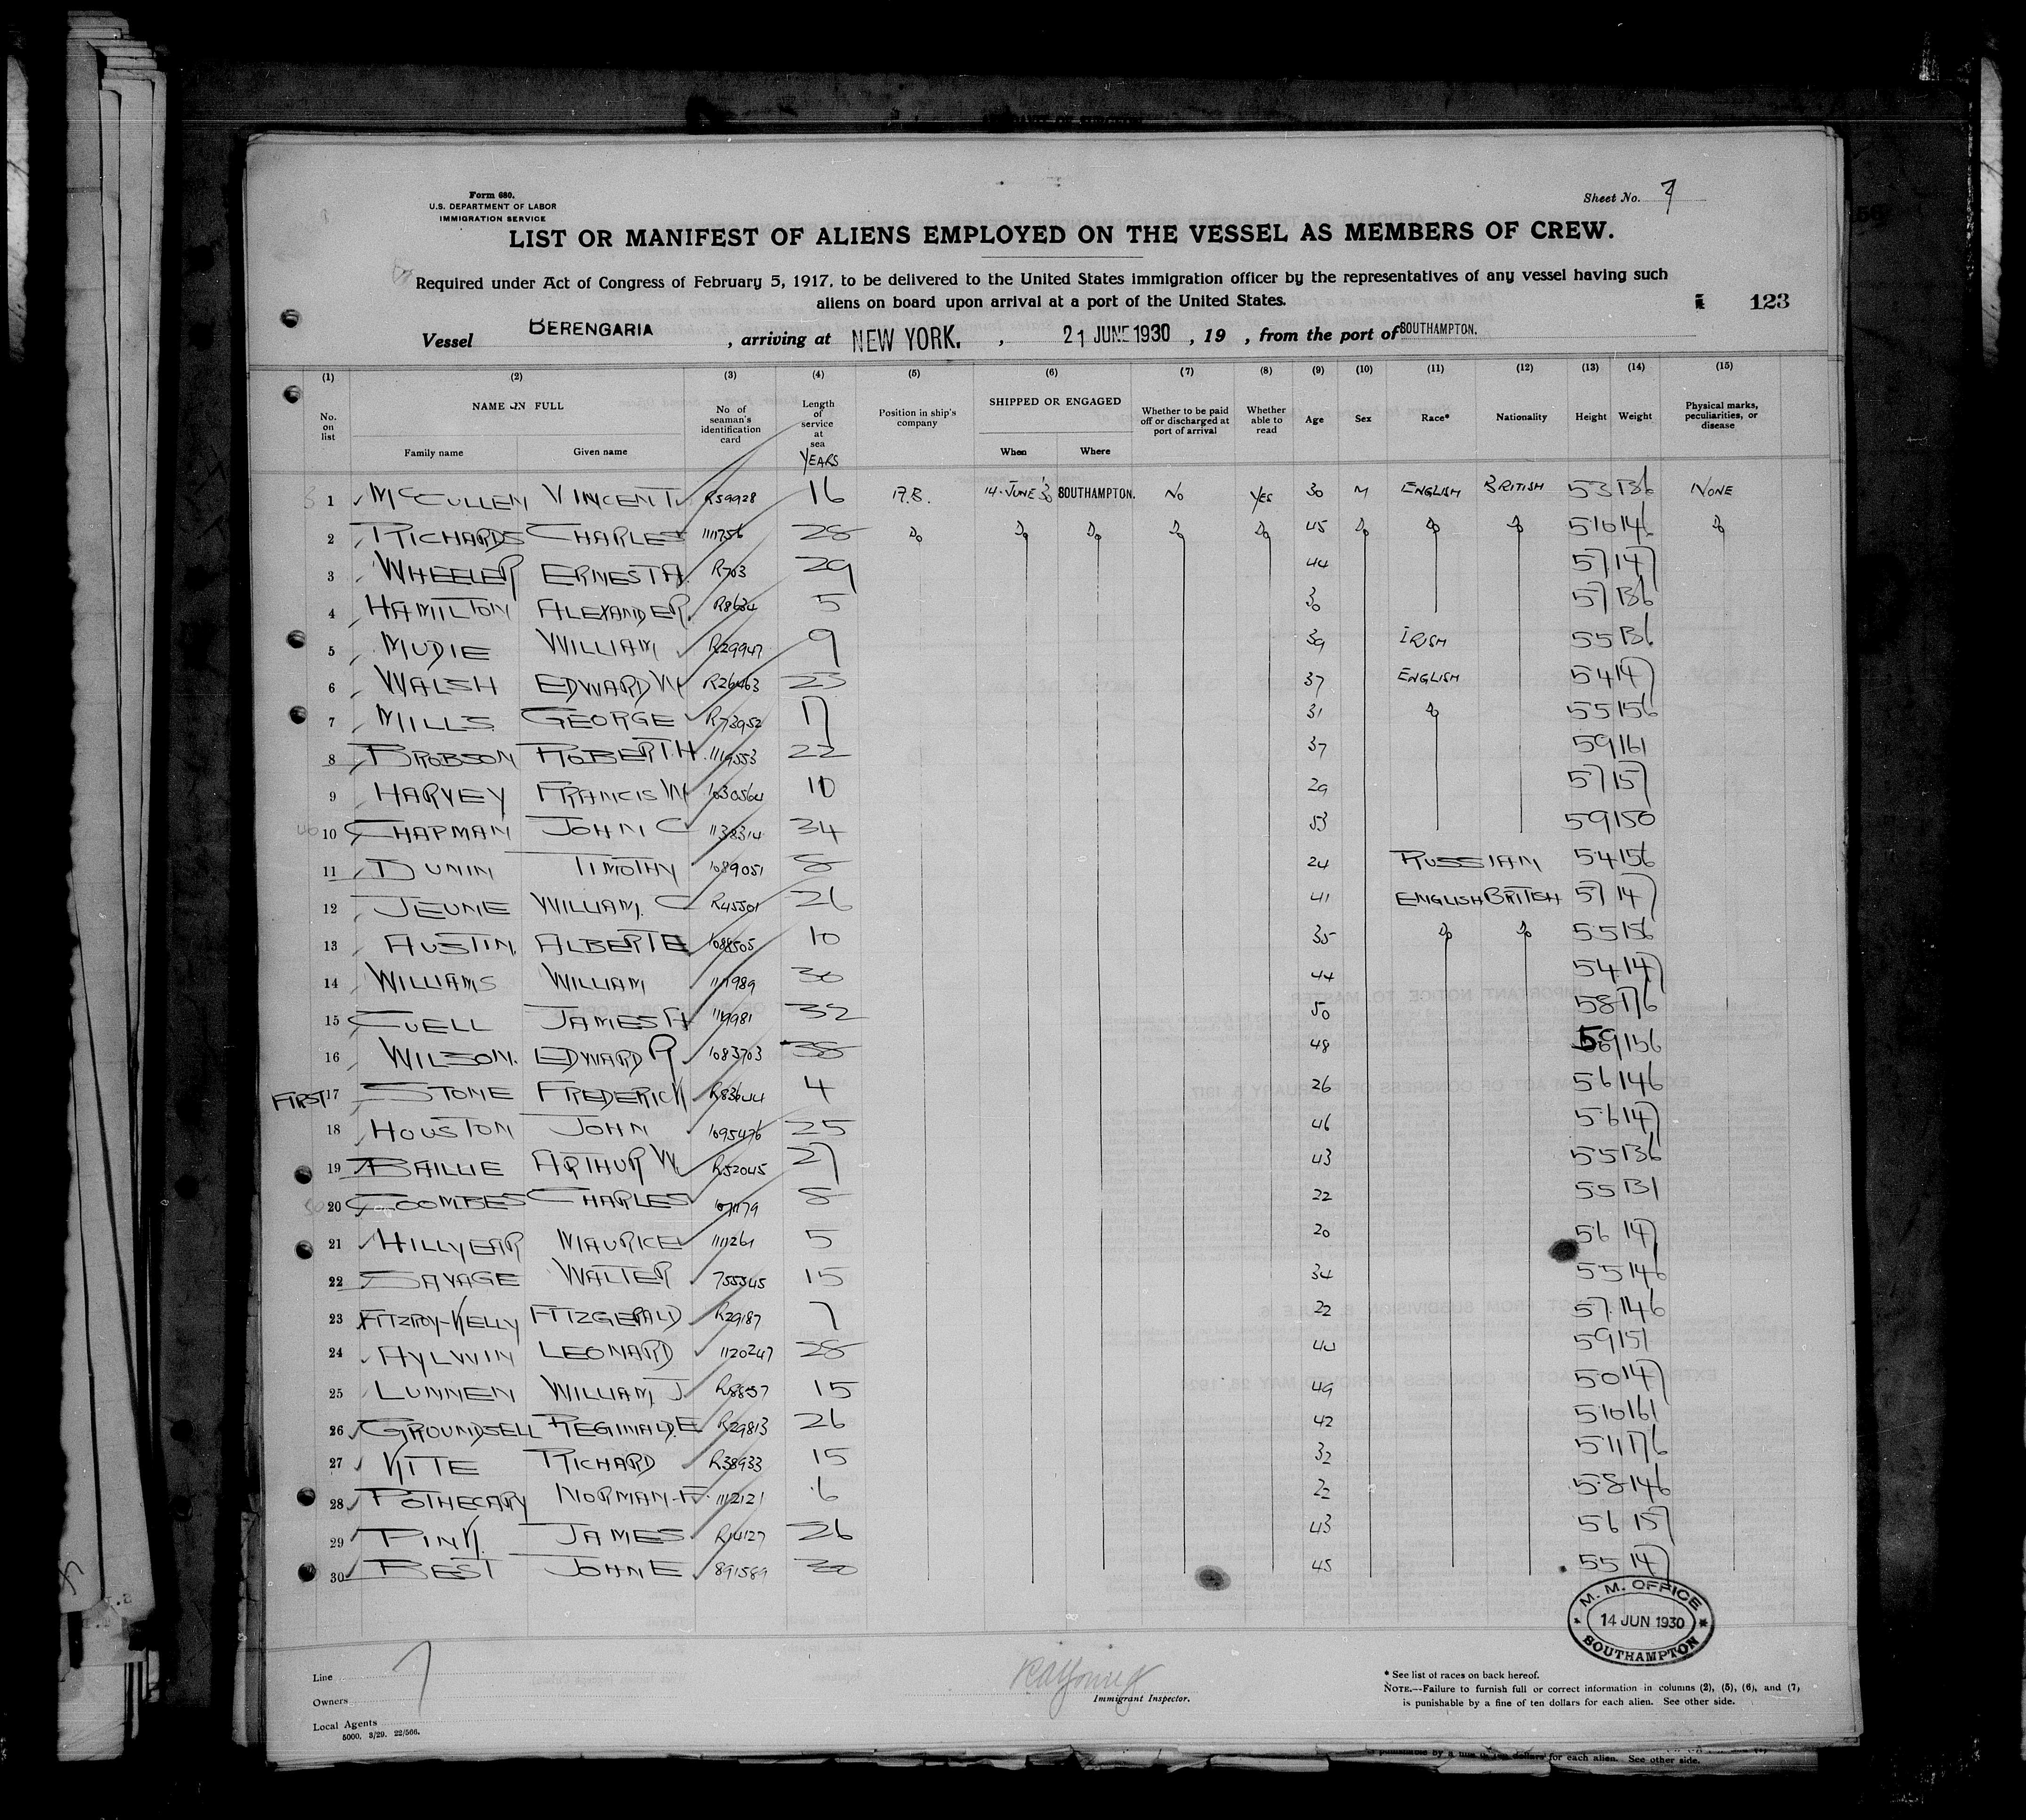 Form 680.
U.S. DEPARTMENT OF LABOR
IMMIGRATION SERVICE
Sheet No. 7
LIST OR MANIFEST OF ALIENS EMPLOYED ON THE VESSEL AS MEMBERS OF CREW.
Required under Act of Congress of February 5, 1917, to be delivered to the United States immigration officer by the representatives of any vessel having such
aliens on board upon arrival at a port of the United States.
123
Vessel BERENGARIA, arriving at NEW YORK., 21 JUNE 1930, 19 , from the port of SOUTHAMPTON.
(1) (2) (3) (4) (5) (6) (7) (8) (9) (10) (11) (12) (13) (14) (15)
No. on list NAME IN FULL Family name Given name No of seaman's identification card Length of service at sea YEARS Position in ship's company SHIPPED OR ENGAGED When Where Whether to be paid off or discharged at port of arrival Whether able to read Age Sex Race* Nationality Height Weight Physical marks, peculiarities, or disease
1 McCULLEN VINCENT R59928 16 14 JUNE 30 SOUTHAMPTON. No YES 30 M ENGLISH BRITISH 5 3 136 NONE
2 RICHARDS CHARLES 1111756 28 Do Do Do Do Do 45 Do Do Do 5 10 146 Do
3 WHEELER ERNEST A. R703 29 44 5 7 147
4 HAMILTON ALEXANDER. R8634 5 30 5 7 136
5 MUDIE WILLIAM R29947 9 39 IRISH 5 5 136
6 WALSH EDWARD W R26463 23 37 ENGLISH 5 4 147
7 MILLS GEORGE R73952 17 31 Do 5 5 156
8 BROBSON ROBERT H 1119553 22 37 5 9 161
9 HARVEY FRANCIS W 1030564 10 29 5 7 157
10 CHAPMAN JOHN C 1138314 34 53 5 9 150
11 DUNIN TIMOTHY 1089051 8 24 RUSSIAN 5 4 156
12 JEUNE WILLIAM. C R45501 26 41 ENGLISH BRITISH 5 7 147
13 AUSTIN ALBERT E 1088505 10 35 Do Do 5 5 156
14 WILLIAMS WILLIAM 1111989 30 44 5 4 147
15 CUELL JAMES A 1119981 32 50 5 8 176
16 WILSON. EDWARD R 1083703 38 48 5 9 156
FIRST 17 STONE FREDERICK R83644 4 26 5 6 146
18 HOUSTON JOHN 1095476 25 46 5 6 147
19 BAILLIE ARTHUR W R52045 27 43 5 5 136
20 COOMBES CHARLES 8 22 5 5 131
21 HILLYEAR MAURICE 1111261 5 20 5 6 147
22 SAVAGE WALTER 755545 15 34 5 5 146
23 FITZROY-KELLY FITZGERALD R29187 7 22 5 7 146
24 AYLWIN LEONARD 1120247 28 44 5 9 151
25 LUNNEN WILLIAM J R8857 15 49 5 0 147
26 GROUNDSELL REGINALD. E R29813 26 42 5 10 161
27 KITE RICHARD R38933 15 32 5 11 176
28 POTHECARY NORMAN F. 1112121 6 22 5 8 146
29 PINK JAMES R14127 26 43 5 6 157
30 BEST JOHN E 891589 30 45 5 5 147
M. M. OFFICE
14 JUN 1930
SOUTHAMPTON
Line 7
Owners
Local Agents
5000. 3/29. 22/566.
Immigrant Inspector.
* See list of races on back hereof.
NOTE.—Failure to furnish full or correct information in columns (2), (5), (6), and (7)
is punishable by a fine of ten dollars for each alien. See other side.
for each alien. See other side.